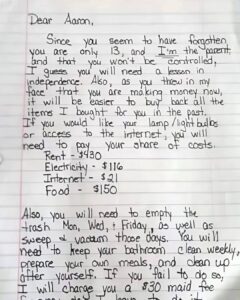 Dear Aaron,
Since you seem to have forgotten
you are only 13, and I'm the parent,
and that you won't be controlled,
I guess you will need a lesson in
independence. Also, as you threw in my
face that you are making money now,
it will be easier to buy back all the
items I bought for you in the past.
If you would like your lamp/lightbulbs
or access to the internet, you will
need to pay your share of costs.
Rent - $430
Electricity - $116
Internet - $21
Food - $150
Also, you will need to empty the
trash Mon, Wed, + Friday, as well as
sweep + vacuum those days. You will
need to keep your bathroom clean weekly,
prepare your own meals, and clean up
after yourself. If you fail to do so,
I will charge you a $30 maid fee